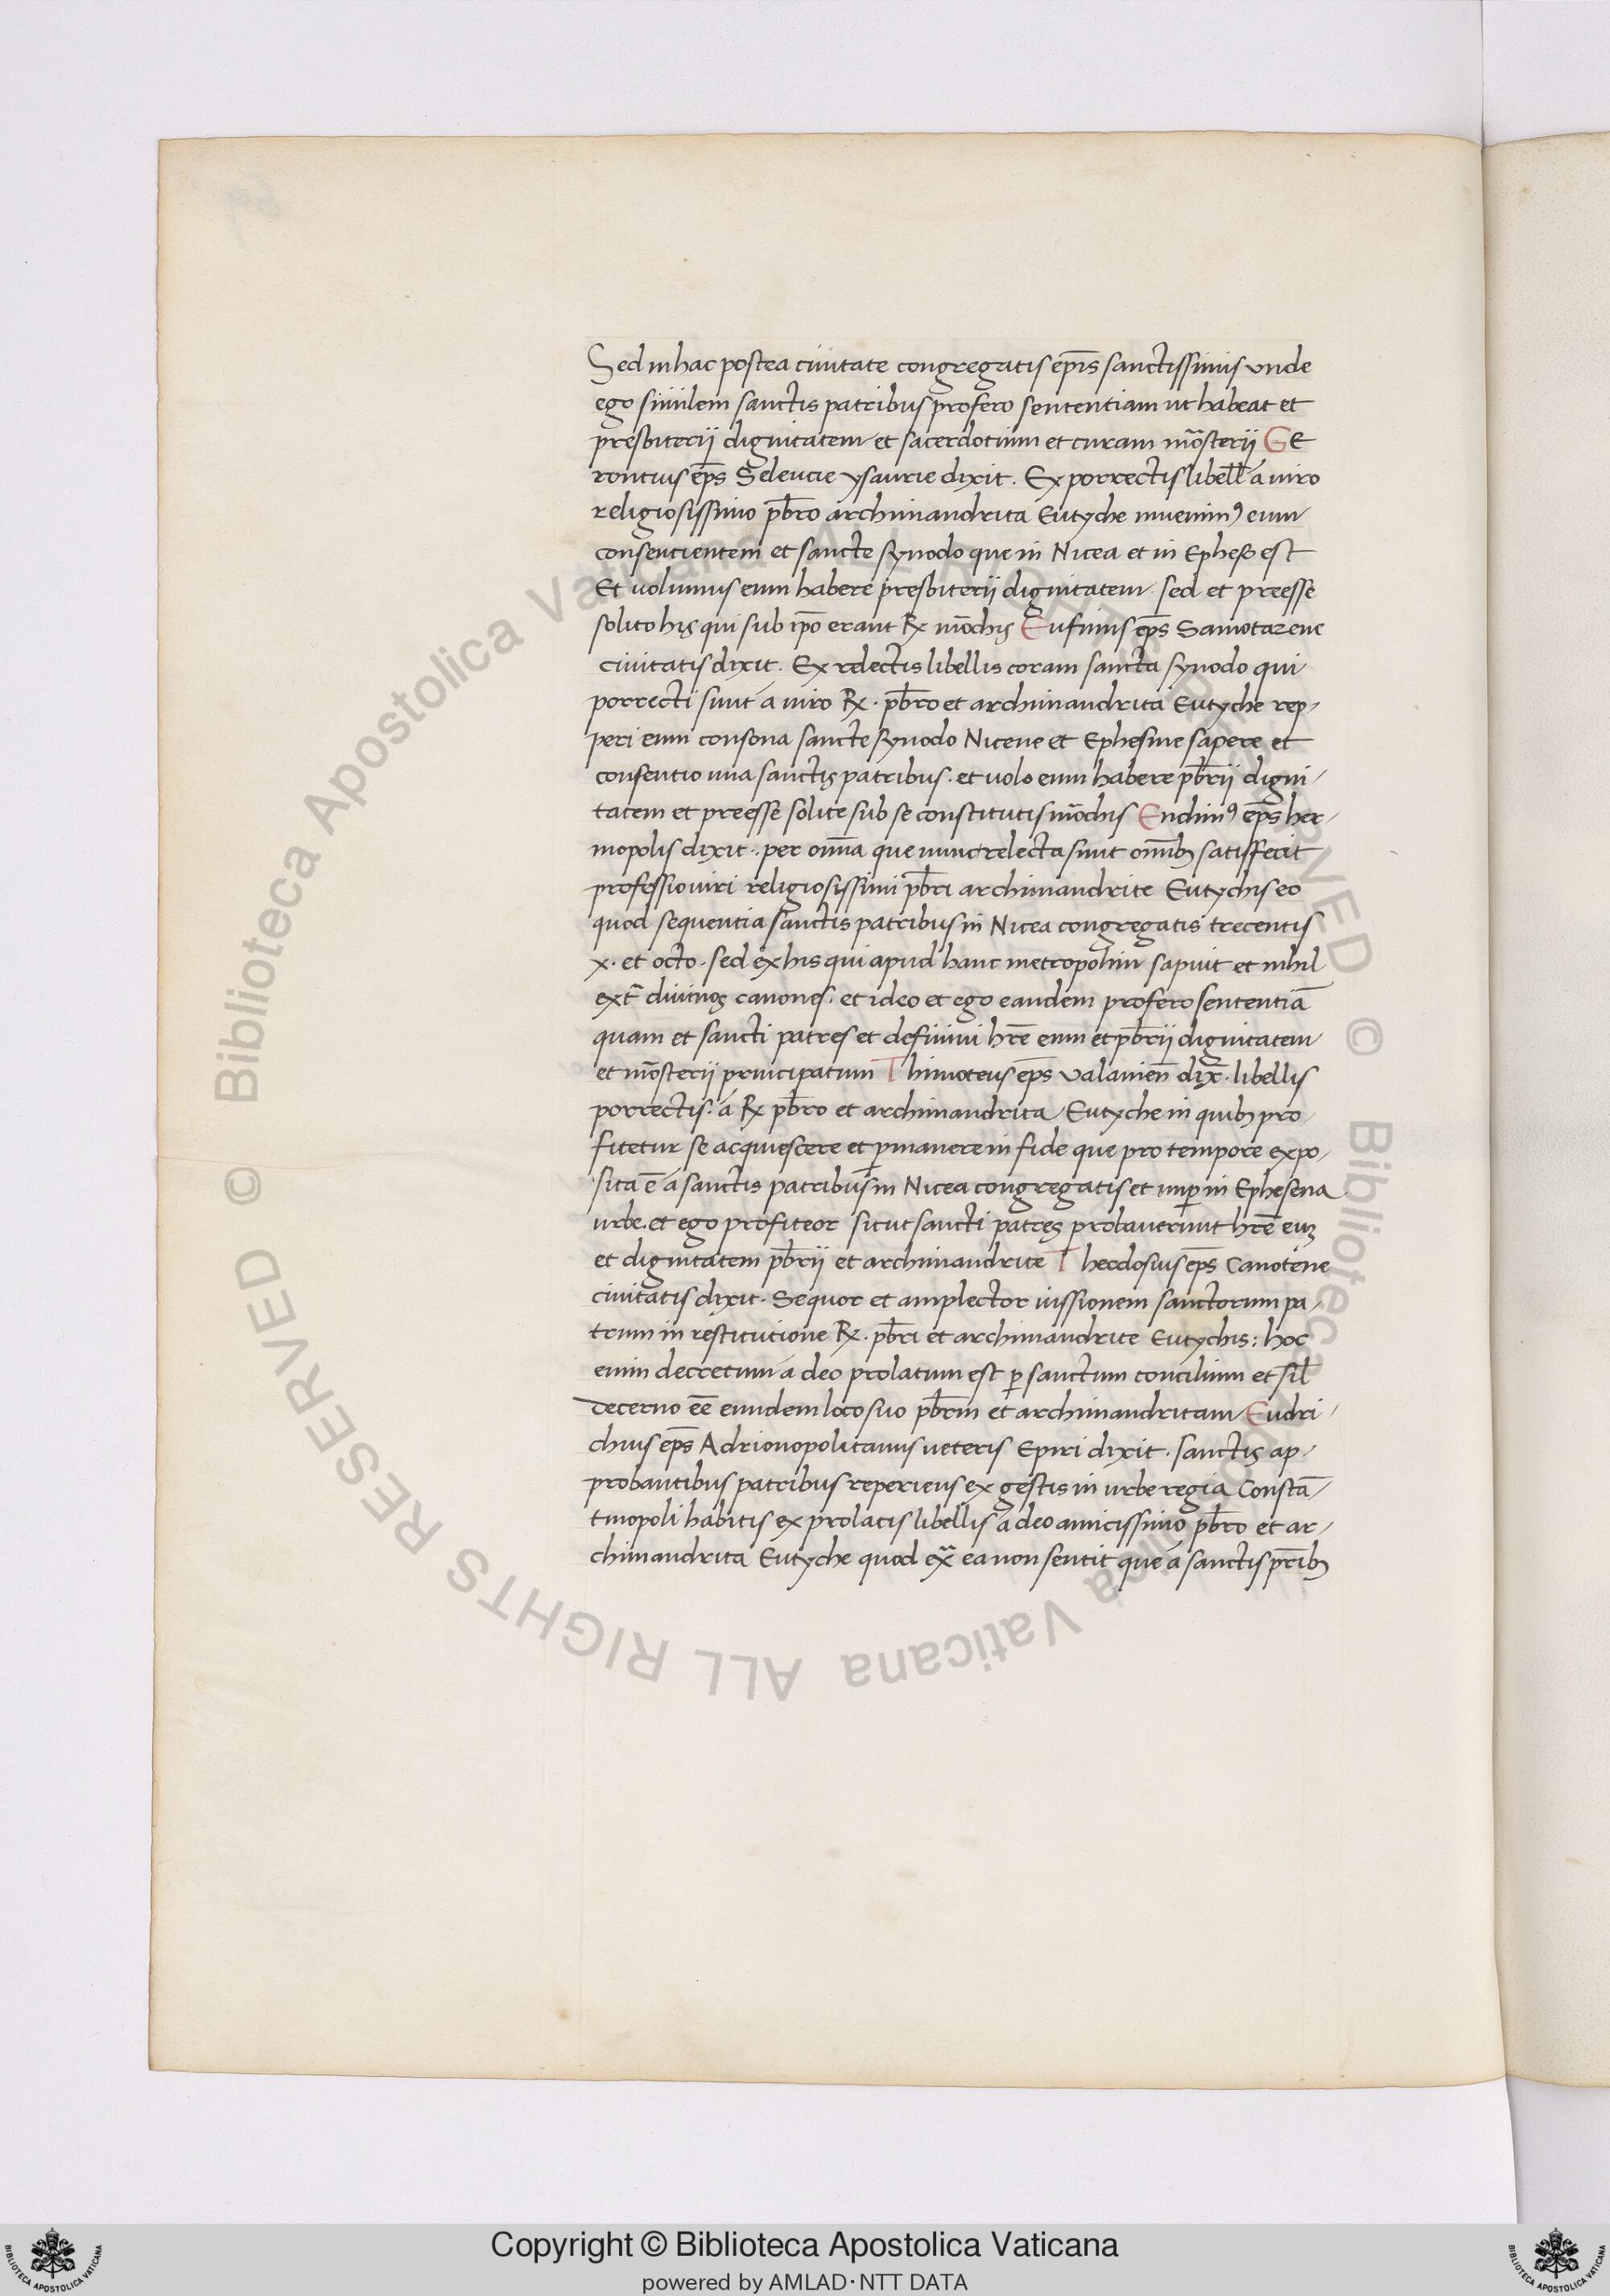 Sed in hac postea ciuitate congregatis ep̄is sanctissimis vnde
ego similem sanctis patribus profero sententiam ut habeat et
presbiterij dignitatem et sacerdotium et curam mōsterij GE
rontius ep̄s Seleucie ysaurie dixit. Ex porrectis libell̄ a viro
religiosissimo pb̄ro archimandrita Eutyche inuenimꝰ eum
consentientem et sancte synodo que in Nicea et in Epheso est
Et uolumus eum habere presbiterij dignitatem sed et preesse
solito his qui sub ip̄o erant R̵ mōchis Eufimus ep̄s Samotazene
ciuitatis dixit. Ex relectis libellis coram sancta synodo qui
porrecti sunt a uiro R̵. pb̄ro et archimandrita Eutyche rep/
peri eum consona sancte synodo Nicene et Ephesine sapere et
consentio una sanctis patribus. et uolo eum habere pb̄rij digni/
tatem et preesse solite sub se constitutis mōchis Endimꝰ ep̄s her/
mopolis dixit. per om̄a que nunc relecta sunt om̄ibꝫ satisfecit
professio uiri religiosissimi pb̄ri archimandrite Eutychis eo
quod sequentia sanctis patribus in Nicea congregatis trecentis
x. et octo. sed ex his qui apud hanc metropolim sapuit et nihil
ext̄ diuinos canones. et ideo et ego eandem profero sententiā
quam et sancti patres et definiui hr̄e eum et pb̄rij dignitatem
et mōsterij principatum Thimoteus ep̄s valanien̄ dix̄. libellis
porrectis. a R̵ pb̄ro et archimandrita Eutyche in quibꝫ pro
fitetur se acquiescere et ꝑmanere in fide que pro tempore expo/
sita ē a sanctis patribus in Nicea congregatis et nuꝑ in Ephesena
urbe. et ego profiteor sicut sancti patres probauerunt hr̄e euꝫ
et dignitatem pb̄rij et archimandrite Theodosius ep̄s Canotene
ciuitatis dixit. Sequor et amplector iussionem sanctorum pa/
trum in restitutione R̵. pb̄ri et archimandrite Eutychis: hoc
enim decretum a deo prolatum est ꝑ sanctum concilium et sil̄
decerno eē eundem loco suo pb̄rm et archimandritam Eudri/
chius ep̄s Adrionopolitanus ueteris Epiri dixit. sanctis ap/
probantibus patribus reperiens ex gestis in urbe regia Constā/
tinopoli habitis ex prolatis libellis a deo amicissimo pb̄ro et ar/
chimandrita Eutyche quod ex̄ ea non sentit que a sanctis pr̄ibꝫ
© Biblioteca Apostolica Vaticana ALL RIGHTS RESERVED
© Biblioteca Apostolica Vaticana ALL RIGHTS RESERVED
Copyright © Biblioteca Apostolica Vaticana
powered by AMLAD·NTT DATA
BIBLIOTECA APOSTOLICA VATICANA
BIBLIOTECA APOSTOLICA VATICANA